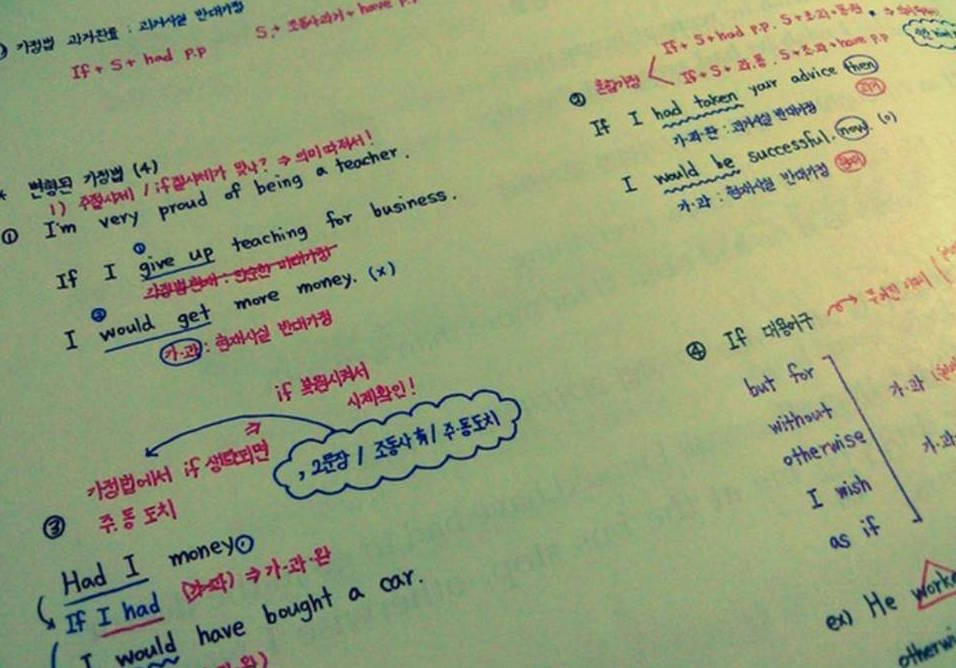 가정법 과거완료 : 과거사실 반대가정
If + S + had p.p
S + 조동사과거 + have p.p
* 변형된 가정법 (4)
1) 주절시제 / if절시제가 맞나? ⇒ 의미 따져서!
① I'm very proud of being a teacher.
① If I give up teaching for business.
가정법현재 : 단순한 미래가정
② I would get more money. (x)
가·과 : 현재사실 반대가정
if 복원시켜서
시제확인!
, 2문장 / 조동사 有 / 주·동도치
③ 가정법에서 if 생략되면
주·동 도치
Had I money,
If I had (가·과) ⇒ 가·과·완
I would have bought a car.
② 혼합가정 < If + S + had p.p. S + 조·과 + 동원
If + S + 과·동. S + 조·과 + have p.p
If I had taken your advice then
가·과·완 : 과거사실 반대가정 과거
I would be successful. now. (o)
가·과 : 현재사실 반대가정 현재
④ If 대용어구
but for
without
otherwise
I wish
as if
가·과
가·과
ex) He worke
otherwi